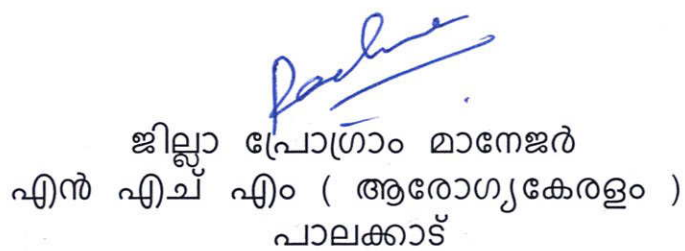 ജില്ലാ പ്രോഗ്രാം മാനേജർ
എൻ എച്ച് എം ( ആരോഗ്യകേരളം )
പാലക്കാട്